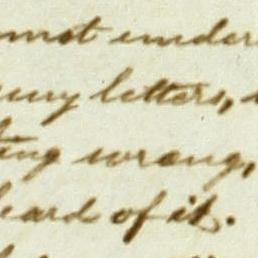 not under
my letters,
ting wrong,
heard of it.